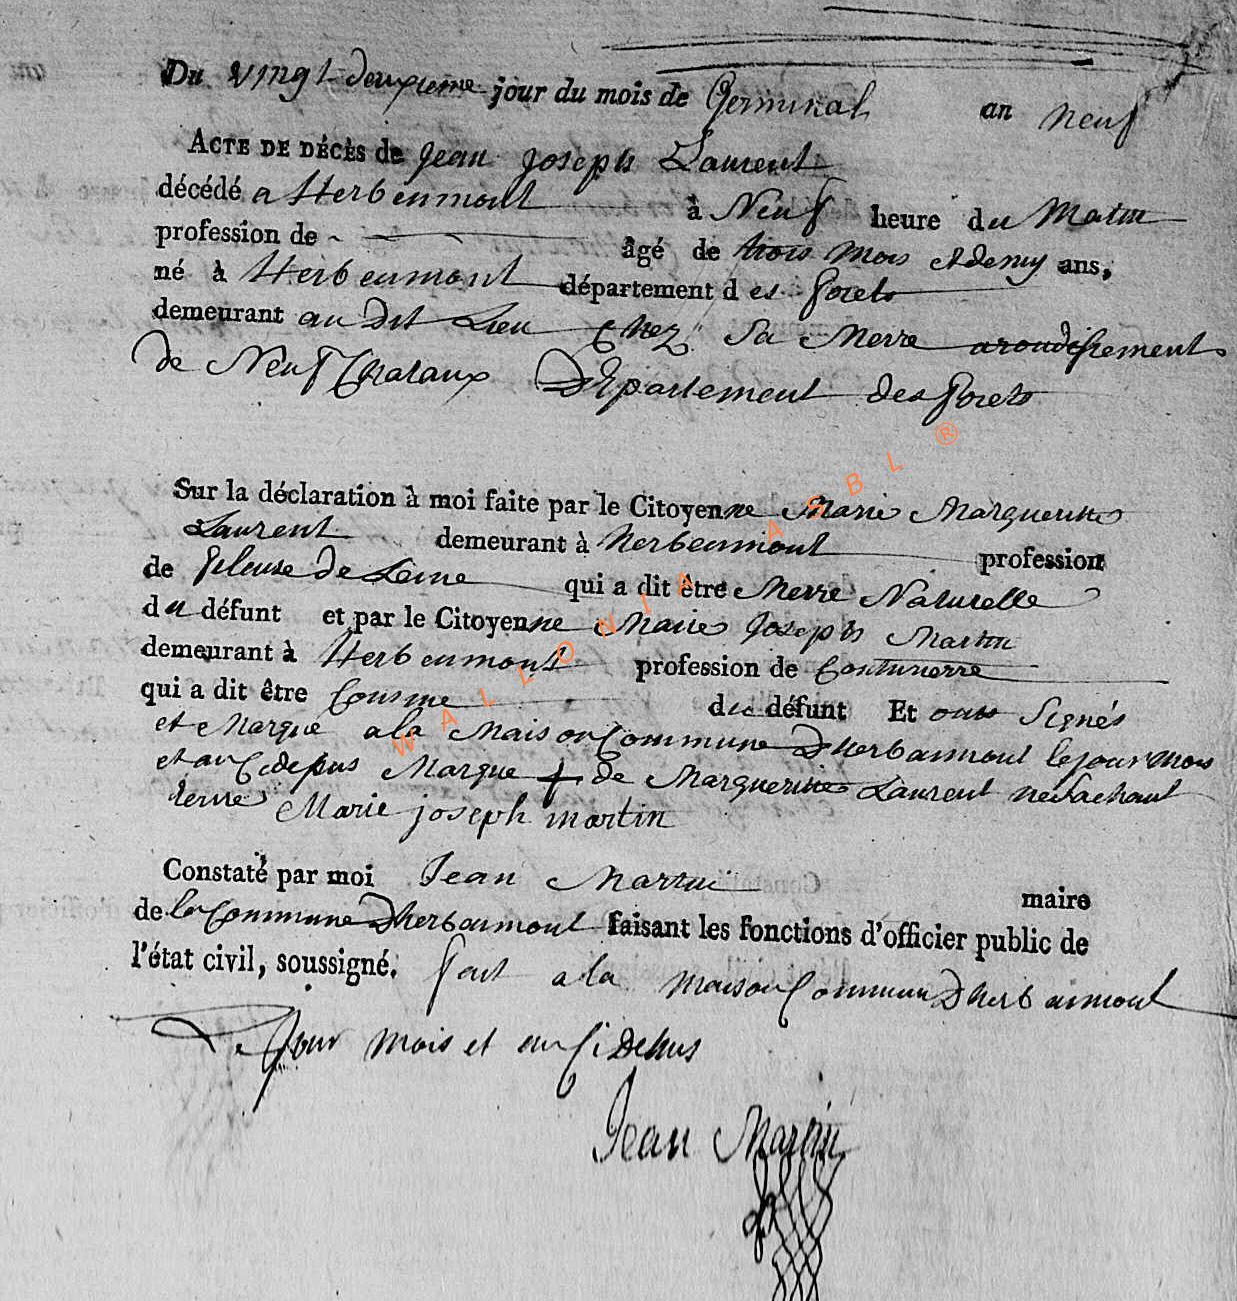 Du vingt deuxieme jour du mois de Germinal an neuf
ACTE DE DÉCÈS de Jean Joseph Laurent
décédé a Herbeumont à Neuf heure du Matin
profession de âgé de trois mois et demy ans,
né à Herbeumont département des forets
demeurant au dit Lieu Chez Sa Merre arondissement
de Neuf Chataux Département des forets
Sur la déclaration à moi faite par le Citoyenne Marie Margueritte
Laurent demeurant à herbeumont profession
de fileuse de Leine qui a dit être Merre Naturelle
du défunt et par le Citoyenne Marie Joseph Martin
demeurant à Herbeumont profession de Couturierre
qui a dit être Cousine du défunt Et ont Signés
et Marqué a la Maison Commune Dherbaimont le jour mois
et an Cidepus Marque + de Margueritte Laurent ne Sachant
Marie joseph martin
Constaté par moi Jean Martin maire
de la Commune Dherbaimont faisant les fonctions d'officier public de
l'état civil, soussigné. fait a la maison Commune Dherbaimont
Le Jour mois et an Cidehus
Jean Martin
WALLONIA ASBL ®